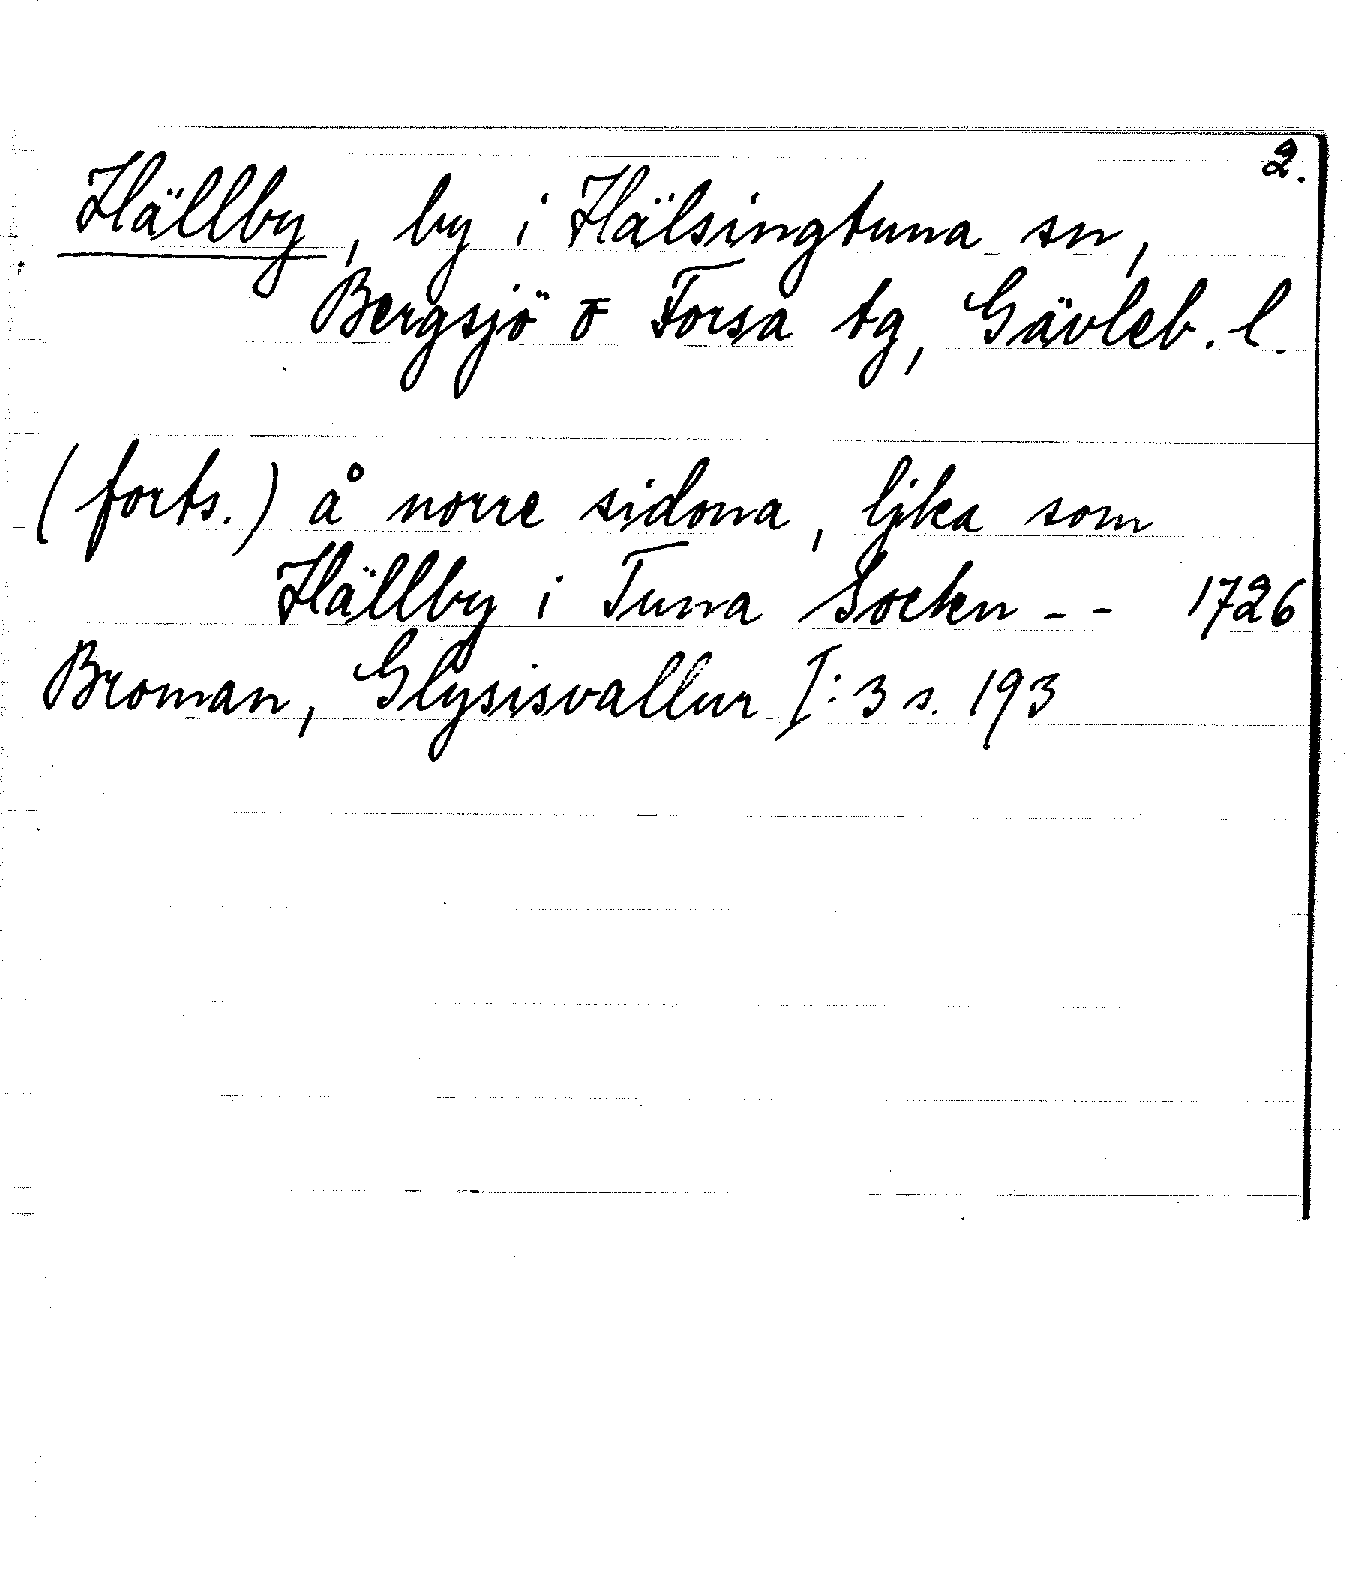 2.
Hällby, by i Hälsingtuna sn,
Bergsjö o Forsa tg, Gävleb. l.
(forts.) å norre sidona, lijka som
Hällby i Tuna Sockn - - 1726
Broman, Glysisvallur I:3 s. 193